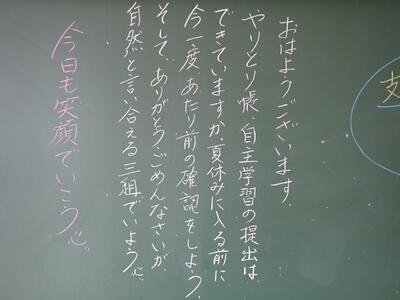 おはようございます。
やりとり帳、自主学習の提出は、
できていますか。夏休みに入る前に
今一度、あたり前の確認をしよう。
そして、ありがとう、ごめんなさいが、
自然と言い合える三組でいよう。
今日も笑顔でいこう
支